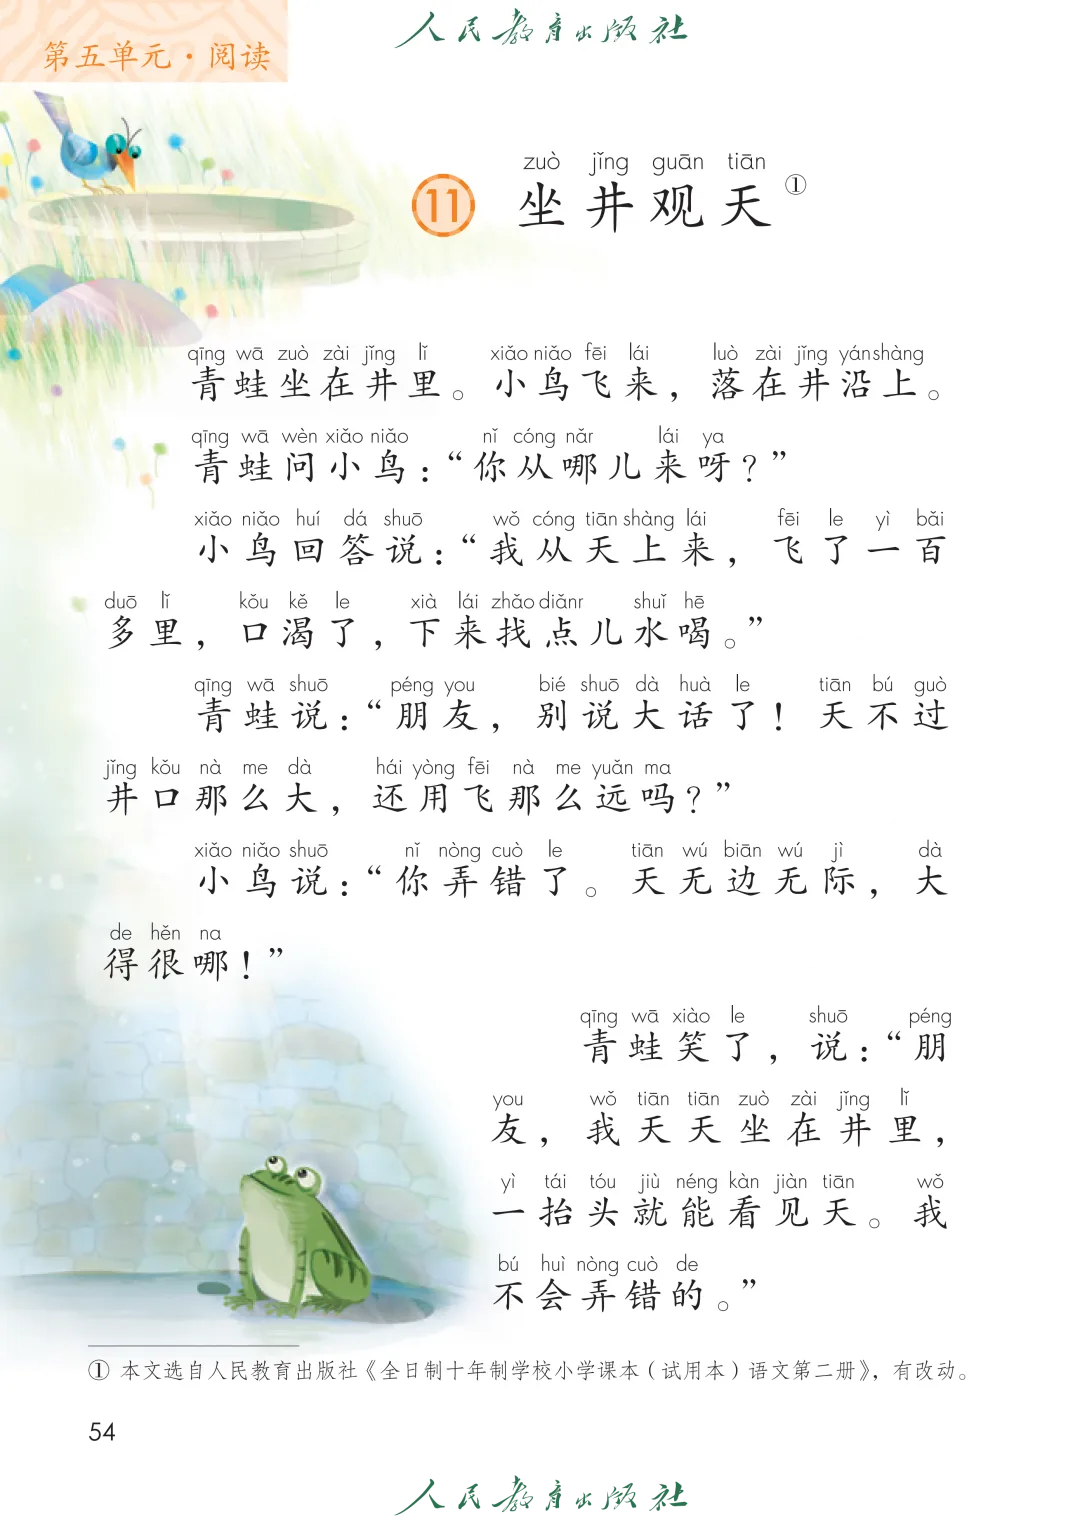 人民教育出版社
第五单元·阅读
zuò jǐng guān tiān
11 坐井观天①
qīng wā zuò zài jǐng lǐ xiǎo niǎo fēi lái luò zài jǐng yán shàng
青蛙坐在井里。小鸟飞来，落在井沿上。
qīng wā wèn xiǎo niǎo nǐ cóng nǎr lái ya
青蛙问小鸟：“你从哪儿来呀？”
xiǎo niǎo huí dá shuō wǒ cóng tiān shàng lái fēi le yì bǎi
小鸟回答说：“我从天上来，飞了一百
duō lǐ kǒu kě le xià lái zhǎo diǎnr shuǐ hē
多里，口渴了，下来找点儿水喝。”
qīng wā shuō péng you bié shuō dà huà le tiān bú guò
青蛙说：“朋友，别说大话了！天不过
jǐng kǒu nà me dà hái yòng fēi nà me yuǎn ma
井口那么大，还用飞那么远吗？”
xiǎo niǎo shuō nǐ nòng cuò le tiān wú biān wú jì dà
小鸟说：“你弄错了。天无边无际，大
de hěn na
得很哪！”
qīng wā xiào le shuō péng
青蛙笑了，说：“朋
you wǒ tiān tiān zuò zài jǐng lǐ
友，我天天坐在井里，
yì tái tóu jiù néng kàn jiàn tiān wǒ
一抬头就能看见天。我
bú huì nòng cuò de
不会弄错的。”
① 本文选自人民教育出版社《全日制十年制学校小学课本（试用本）语文第二册》，有改动。
54
人民教育出版社